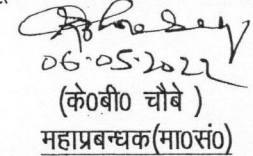 06-05-2022
(के0बी0 चौबे )
महाप्रबन्धक(मा0सं0)